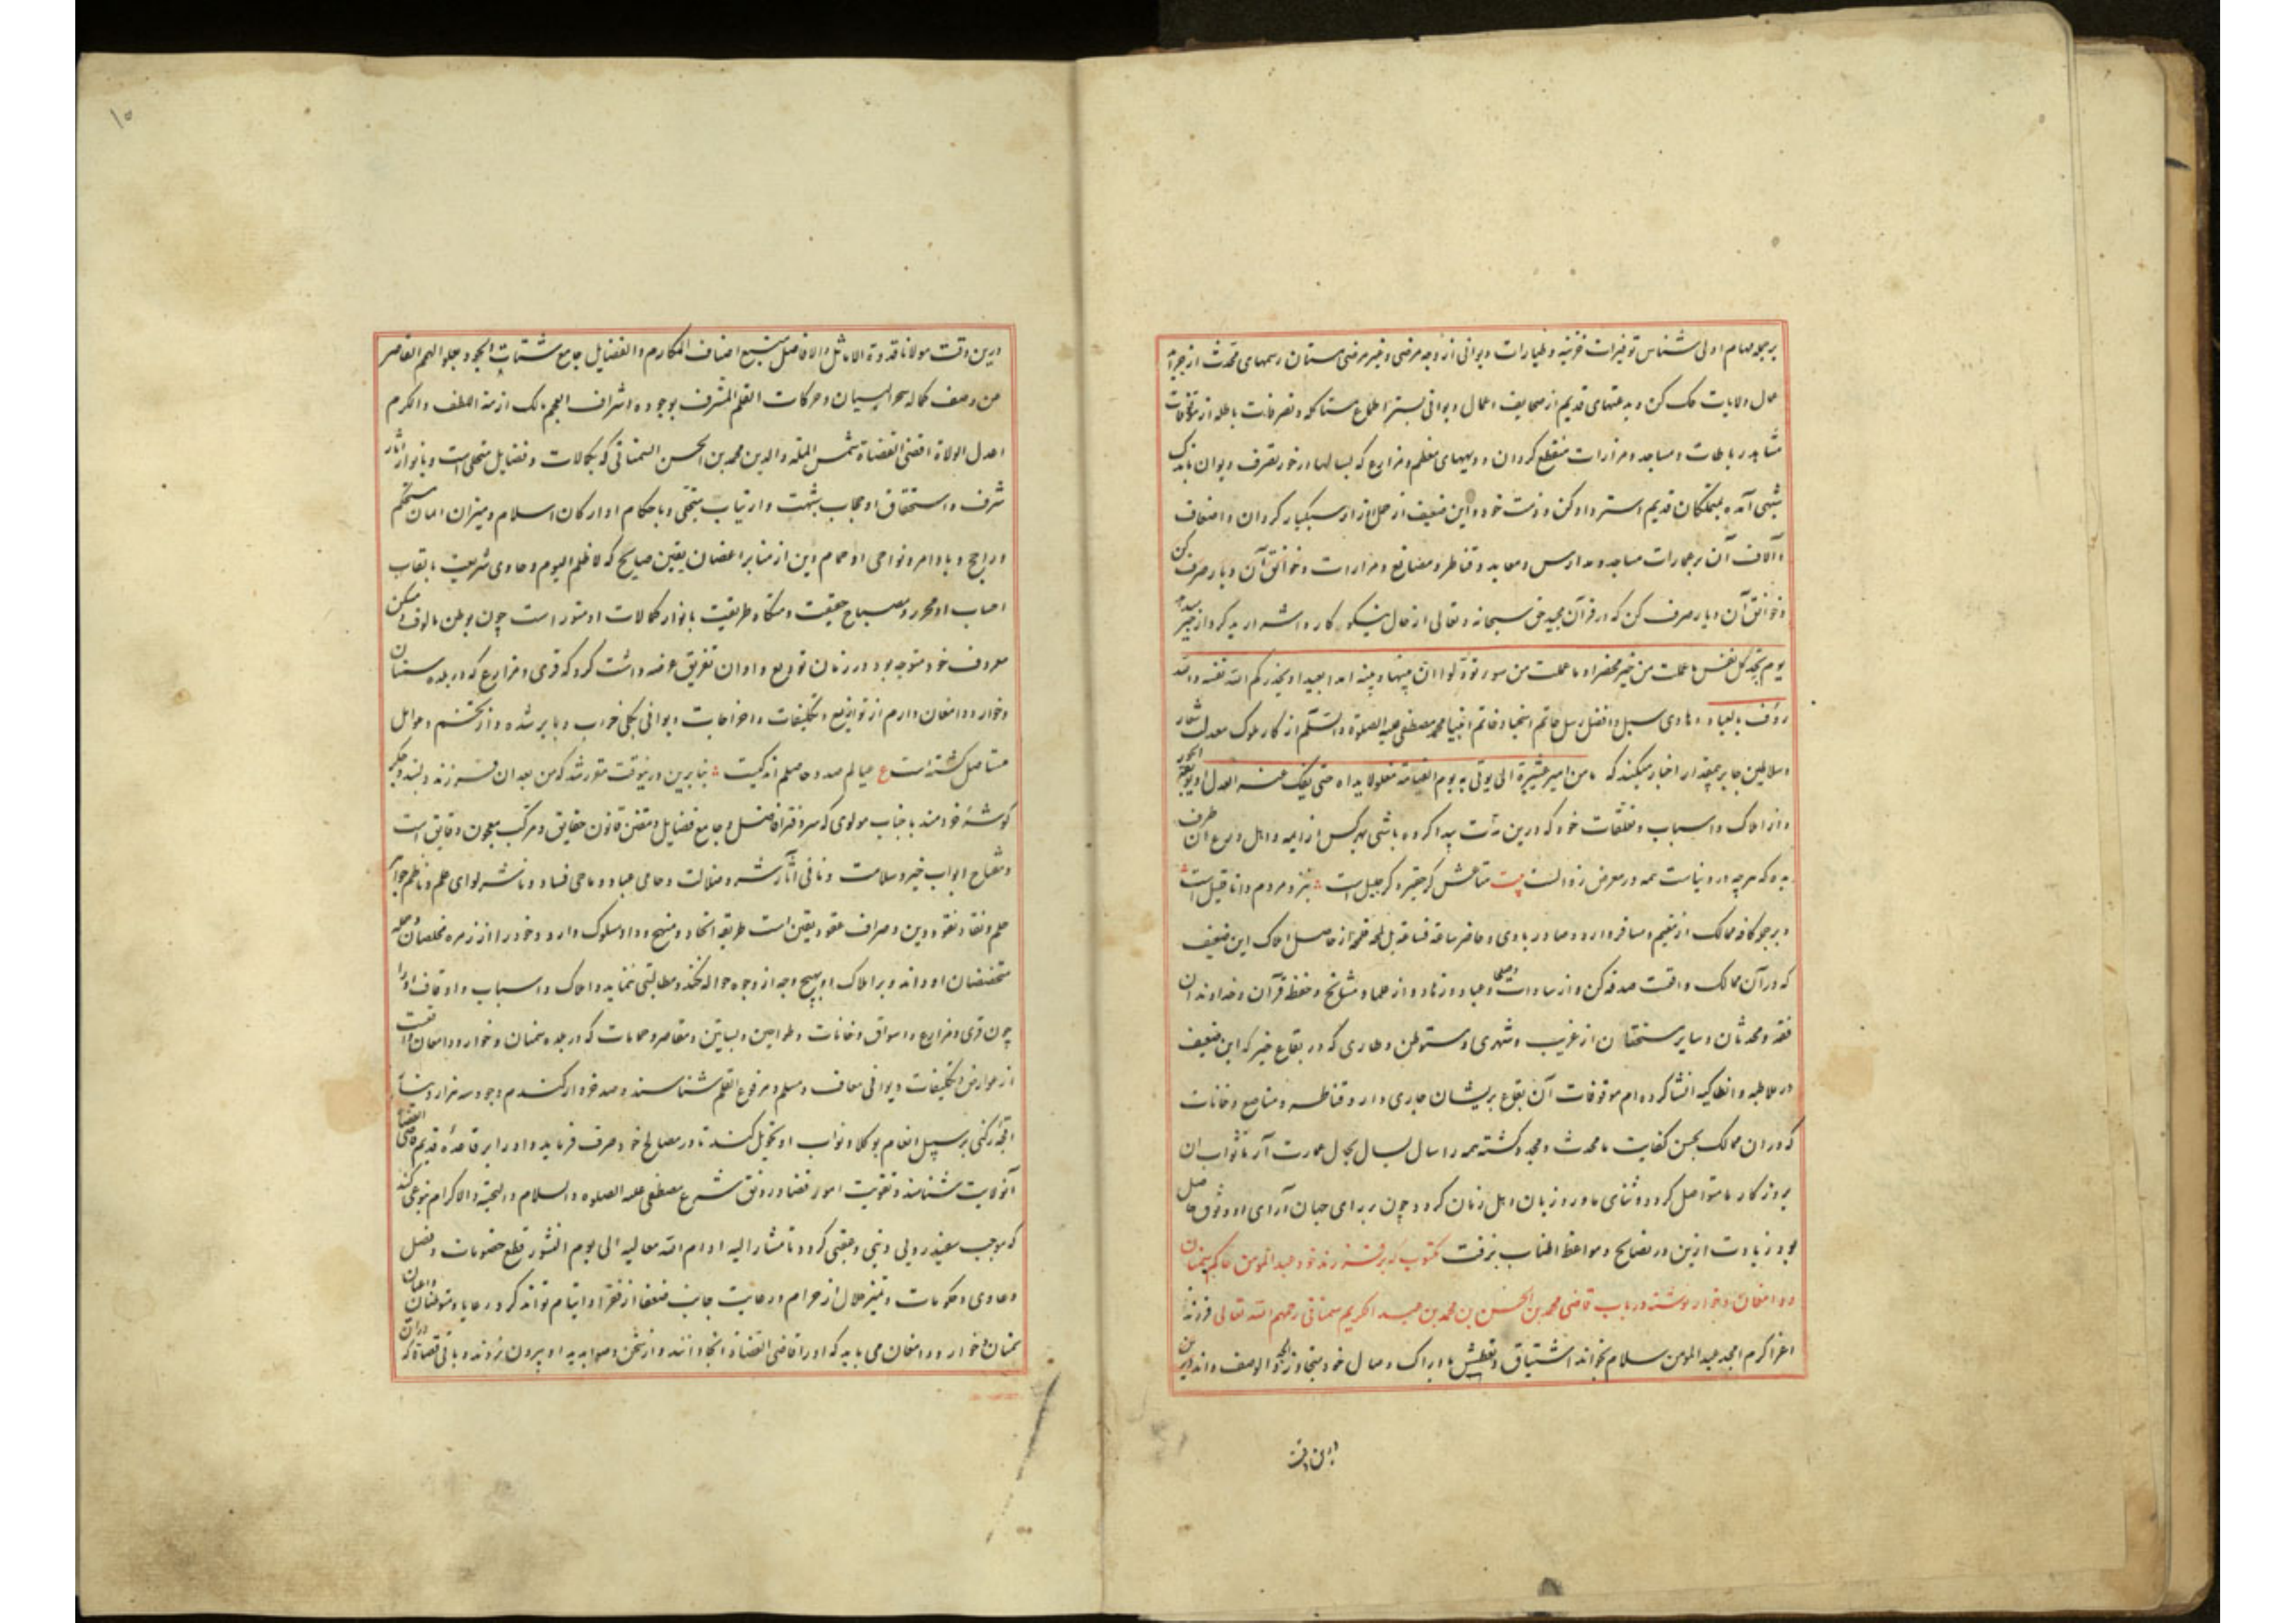 بر جمله مهام اولی شناس توفیرات خزینه و طیارات دیوانی از وجه مرضی و غیر مرضی مستان رسمهای محدث از جراید
عمال ولایات حک کن و بدعتهای قدیم از صحایف اعمال دیوانی بستر اطماع مستاکله و تصرفات باطله از موقوفات
مشاهد و رباطات و مساجد و مزارات منقطع گردان و دیههای معظم و مزارع که بسالها در حوز تصرف دیوان باندک
شبهی آمده بمتملکان قدیم استرداد کن و ذمت خود و این ضعیف از حمل اوزار سبکبار گردان و اضعاف
و آلاف آن بر عمارات مساجد و مدارس و معابد و قناطر و مصانع و مزارات و خوانق آن دیار صرف کن
و خوانق آن دیار صرف کن که در قرآن مجید حق سبحانه و تعالی از حال نیکوکار و اشرار بدکردار خبر میدهد
یوم تجد کل نفس ما عملت من خیر محضرا و ما عملت من سوء تود لو ان بینها و بینه امدا بعیدا و یحذرکم الله نفسه والله
رؤف بالعباد و هادی سبل و افضل رسل خاتم اسخیا و خاتم انبیا محمد مصطفی علیه الصلوة والسلم از کار ملوک معدلت شعار
و سلاطین جابر جفاکار اخبار میکند که ما من امیر عشیرة الا یوتی به یوم القیامة مغلولا یداه حتی یفک عنه العدل او یوبقه الجور
و از املاک و اسباب و متعلقات خود که درین مدت پیدا کرده باشی بهر کس از ایمه و اهل ورع آن طرف
بده که هرچه در دنیاست همه در معرض زوالست بیت متاعش گر حقیر و گر جلیل است نزد مردم دانا قلیل است
و بر جمهور کافه ممالک از مقیم و مسافر و وارد و صادر و بادی و حاضر ساقة فساقة بل لقمة فلقمة از حاصل املاک این ضعیف
که در آن ممالک واقعست صدقه کن و از سادات و صلحا و عباد و زهاد و از علما و مشایخ و حفظه قرآن و خداوندان
فقه و محدثان و سایر مستحقان از غریب و شهری و مستوطن و طاری که در بقاع خیر که این ضعیف
در ملاطیه و انطاکیه انشا کرده ام موقوفات آن بقاع بریشان جاری دار و قناطر و مصانع و خانات
که در ان ممالک بحسن کفایت ما محدث و مجدد گشته همه را سال بسال بحال عمارت آر تا ثواب ان
بروزگار ما متواصل گردد و ثنای ما ورد زبان اهل زمان گردد چون بر رای جهان آرای او وثوق حاصل
بود زیادت ازین در نصایح و مواعظ اطناب نرفت مکتوب که بر فرزند خود عبدالمومن حاکم سمنان
و دامغان و خوار نوشته در باب قاضی محمد بن الحسن بن محمد بن عبد الکریم سمنانی رحمهم الله تعالی فرزند
اعز اکرم امجد عبدالمومن سلام بخواند اشتیاق و تعطش با دراک وصال خود متجاوز الحد و الوصف داند
درین وقت
درین وقت مولانا قدوة الاماثل و الافاضل منبع اصناف المکارم و الفضایل جامع شتات الجود جلو الهمم القاصر
من وصف کماله سحر البیان و حرکات القلم المشرف بوجوده اشراف العجم مالک ازمة اللطف و الکرم
اعدل الولاة اقضی القضاة شمس المله والدین محمد بن الحسن السمنانی که بکمالات و فضایل متحلی است و بانوار آثار
شرف و استحقاق او حجاب شبهت و ارتیاب منجلی و باحکام او ارکان اسلام و میزان امان مستحکم
و راجح و باوامر و نواهی او حمام دین از منابر اغصان یقین صایح که لا ظلم الیوم و حاوی شریعت بالقاب
احباب او محرر و مصباح حقیقت و مشکاة طریقت بانوار کمالات او منور است چون بوطن مالوف و مسکن
معروف خود متوجه بود در زمان تودیع و اوان تفریق عرضه داشت کرد که قری و مزارع که در بلده سمنان
و خوار و دامغان دارم از توزیع و تکلیفات و اخراجات دیوانی بکلی خراب و بایر شده و از تخم و عوامل
مستاصل گشته است ع عیالم صد و حاصلم اندکیست بنابرین درینوقت مقرر شد که من بعد ان فرزند دلبند و جگر
گوشه خردمند با جناب مولوی که سر دفتر افاضل و جامع فضایل و مقنن قانون حقایق و مرکب معجون دقایق است
و مفتاح ابواب خیر و سلامت و نافی آثار شر و ضلالت و حامی عباد و ماحی فساد و ناشر لوای علم و ناظم جواهر
حلم و نقاد نقود دین و صراف عقود یقین است طریقه اتحاد و منهج وداد مسلوک دارد و خود را از زمره مخلصان و جمله
متخصصان او داند و بر املاک او بهیچ وجه از وجوه حواله نکند و مطالبتی ننماید و املاک و اسباب و اوقاف او را
چون قری و مزارع و اسواق و خانات و طواحین و بساتین و مقاصر و حمامات که در بلده سمنان و خوار و دامغان واقعست
از عوارض و تکلیفات دیوانی معاف و مسلم و مرفوع القلم شناسند و صد خروار گندم و جو و سه هزار دینار
اقجه رکنی بر سبیل انعام بوکلا و نواب او تحویل کنند تا در مصالح خود صرف فرماید و او را بر قاعده قدیم قاضی القضاة
آنولایت شناسند و تقویت امور قضا و رونق شرع مصطفی علیه الصلوه و السلام و التحیة و الاکرام بنوعی کند
که موجب سفیدرویی دنیی و عقبی گردد تا مشارالیه ادام الله معالیه الی یوم النشور قطع خصومات و فصل
دعاوی و حکومات و تمیز حلال از حرام و رعایت جانب ضعفا از فقرا و ایتام تواند کرد رعایا و متوطنان و اعیان
سمنان و خوار و دامغان می باید که او را قاضی القضاة انجا دانند و از سخن و صوابدید او بیرون نروند و باقی قضاة که دران